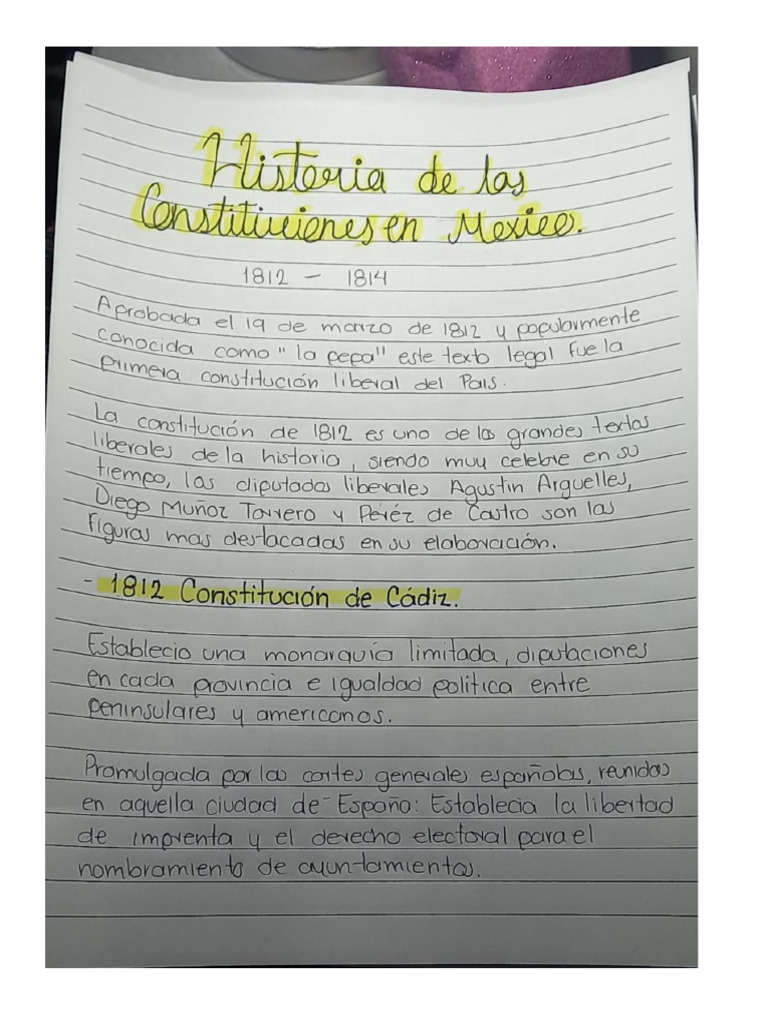 Historia de las
Constituciones en Mexico.
1812 - 1814
Aprobada el 19 de marzo de 1812 y popularmente
conocida como "la pepa" este texto legal fue la
primera constitución liberal del Pais.
La constitución de 1812 es uno de los grandes textos
liberales de la historia, siendo muy celebre en su
tiempo, las diputadas liberales Agustin Arguelles,
Diego Muñoz Torrero y Peréz de Castro son las
figuras mas destacadas en su elaboración.
- 1812 Constitución de Cádiz.
Establecio una monarquía limitada, diputaciones
en cada provincia e igualdad politica entre
peninsulares y americanos.
Promulgada por las cortes generales españolas, reunidas
en aquella ciudad de España: Establecia la libertad
de imprenta y el derecho electoral para el
nombramiento de ayuntamientos.